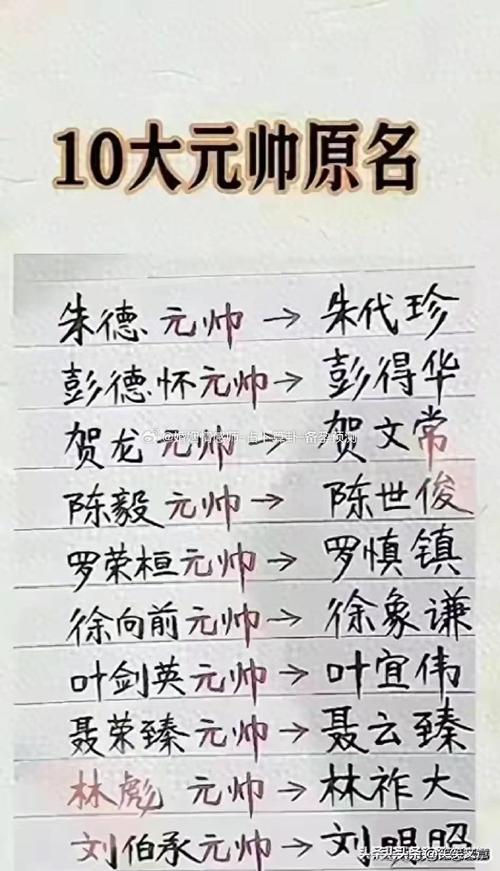 10大元帅原名
朱德元帅→朱代珍
彭德怀元帅→彭得华
贺龙元帅→贺文常
陈毅元帅→陈世俊
罗荣桓元帅→罗慎镇
徐向前元帅→徐象谦
叶剑英元帅→叶宜伟
聂荣臻元帅→聂云臻
林彪元帅→林祚大
刘伯承元帅→刘明昭